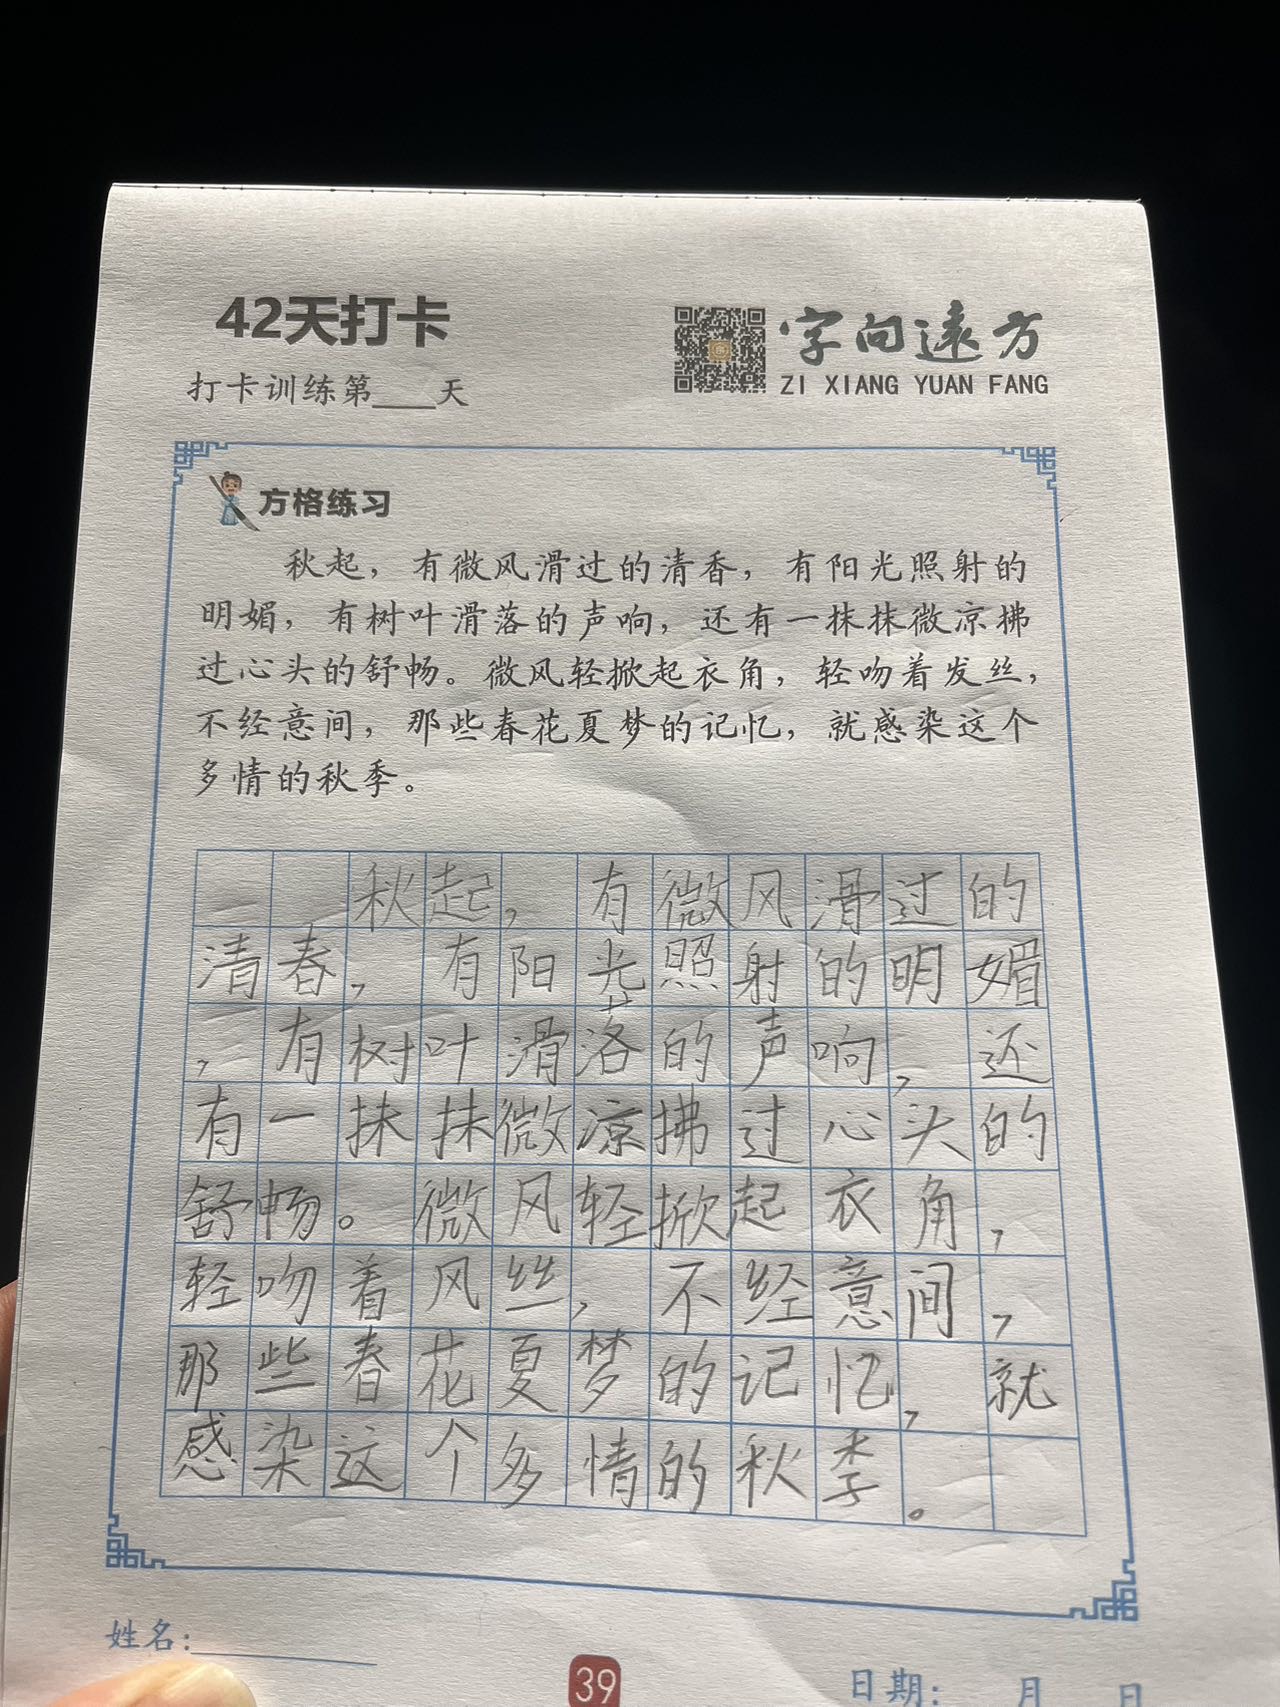 42天打卡
打卡训练第___天
字向遠方
ZI XIANG YUAN FANG
方格练习
秋起，有微风滑过的清香，有阳光照射的
明媚，有树叶滑落的声响，还有一抹抹微凉拂
过心头的舒畅。微风轻掀起衣角，轻吻着发丝，
不经意间，那些春花夏梦的记忆，就感染这个
多情的秋季。
秋起，有微风滑过的
清春，有阳光照射的明媚
，有树叶滑落的声响，还
有一抹抹微凉拂过心头的
舒畅。微风轻掀起衣角，
轻吻着风丝，不经意间，
那些春花夏梦的记忆，就
感染这个多情的秋季。
姓名：
39
日期： 月 日